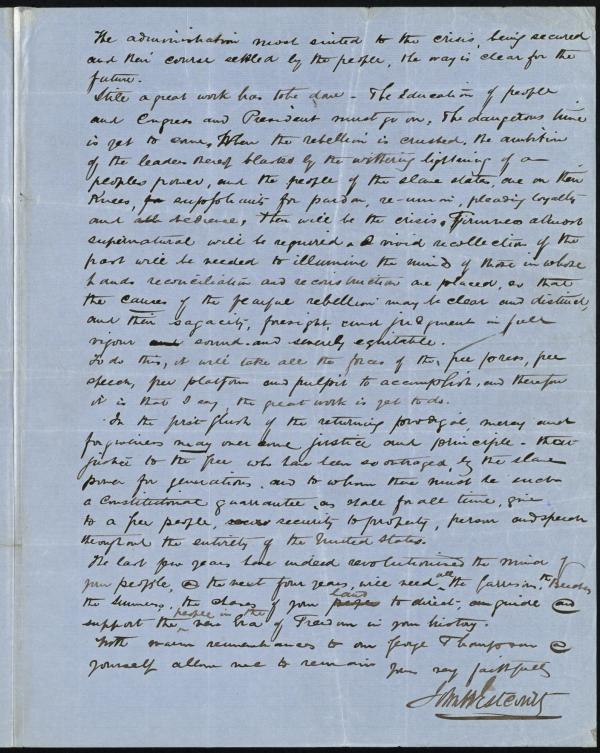 The administration most suited to the crisis, being secured
and their course settled by the people, the way is clear for the
future.
Still a great work has to be done - The education of people
and Congress and President must go on; The dangerous time
is yet to come, When the rebellion is crushed, the ambition
of the leaders thereof blasted by the withering lightning of a
peoples power, and the people of the slave states, are on their
knees, supplicants for pardon, re-union, pleading loyalty
and obedience, then will be the crisis. Firmness almost
supernatural will be required. A vivid recollection of the
past will be needed to illumine the minds of those in whose
hands reconciliation and reconstruction are placed, so that
the causes of the fearful rebellion may be clear and distinct,
and their sagacity, foresight, and judgment in full
vigour sound and severely equitable.
To do this, it will take all the forces of the, free press, free
speech, free platform and pulpit to accomplish, and therefore
it is that I say, the great work is yet to do.
In the first flush of the returning prodigal, mercy and
forgiveness may over come justice and principle - that
justice to the free who have been so outraged, by the slave
power for generations, and to whom there must be such
a Constitutional guarantee, as shall for all time, give
to a free people, security to property, person and speech
throughout the entirety of the United States.
The last few years have indeed revolutionised the mind of
your people, & the next four years, will need all the Garrisons, the Beechers
the Sumners, the of your land to direct, guide and
support the people in the new Era of Freedom in your history.
With warm remembrances to our George Thompson &
yourself allow me to remain your very faithfully
John Estcourt